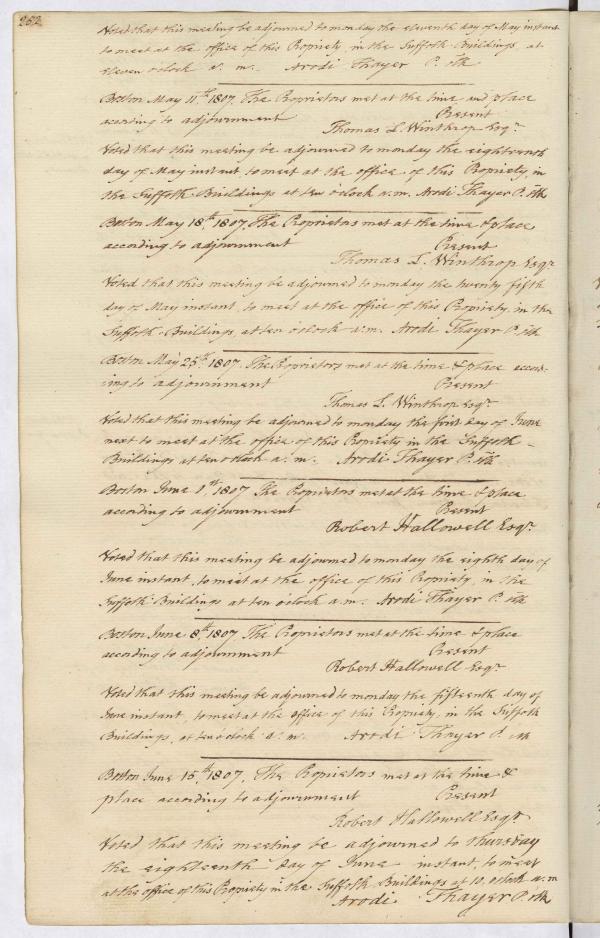 262.
Voted that this meeting be adjourned to monday the eleventh day of May instant
to meet at the office of this Propriety, in the Suffolk Buildings, at
eleven o'clock a. m. Arodi Thayer P. Clk
Boston May 11th 1807. The Proprietors met at the time and place
according to adjournment Present
Thomas L. Winthrop Esqr
Voted that this meeting be adjourned to monday the eighteenth
day of May instant to meet at the office of this Propriety, in
the Suffolk Buildings at ten o'clock a.m. Arodi Thayer P. Clk
Boston May 18th 1807. The Proprietors met at the time & place
according to adjournment Present
Thomas L. Winthrop Esqr
Voted that this meeting be adjourned to monday the twenty fifth
day of May instant, to meet at the office of this Propriety, in the
Suffolk Buildings, at ten o'clock a.m. Arodi Thayer P. Clk
Boston May 25th 1807. The Proprietors met at the time & place accor-
ding to adjournment Present
Thomas L. Winthrop Esqr
Voted that this meeting be adjourned to monday the first day of June
next to meet at the office of this Propriety in the Suffolk
Buildings at ten o'clock a.m. Arodi Thayer P. Clk
Boston June 1st 1807 The Proprietors met at the time & place
according to adjournment Present
Robert Hallowell Esqr
Voted that this meeting be adjourned to monday the eighth day of
June instant, to meet at the office of this Propriety, in the
Suffolk Buildings at ten o'clock a.m. Arodi Thayer P. Clk
Boston June 8th 1807. The Proprietors met at the time & place
according to adjournment Present
Robert Hallowell Esqr
Voted that this meeting be adjourned to monday the fifteenth day of
June instant, to meet at the office of this Propriety, in the Suffolk
Buildings, at ten o'clock a. m. Arodi Thayer P. Clk
Boston June 15th 1807. The Proprietors met at the time &
place according to adjournment Present
Robert Hallowell Esqr
Voted that this meeting be adjourned to thursday
the eighteenth day of June instant, to meet
at the office of this Propriety in the Suffolk Buildings at 10, o'clock a.m
Arodi Thayer P. Clk